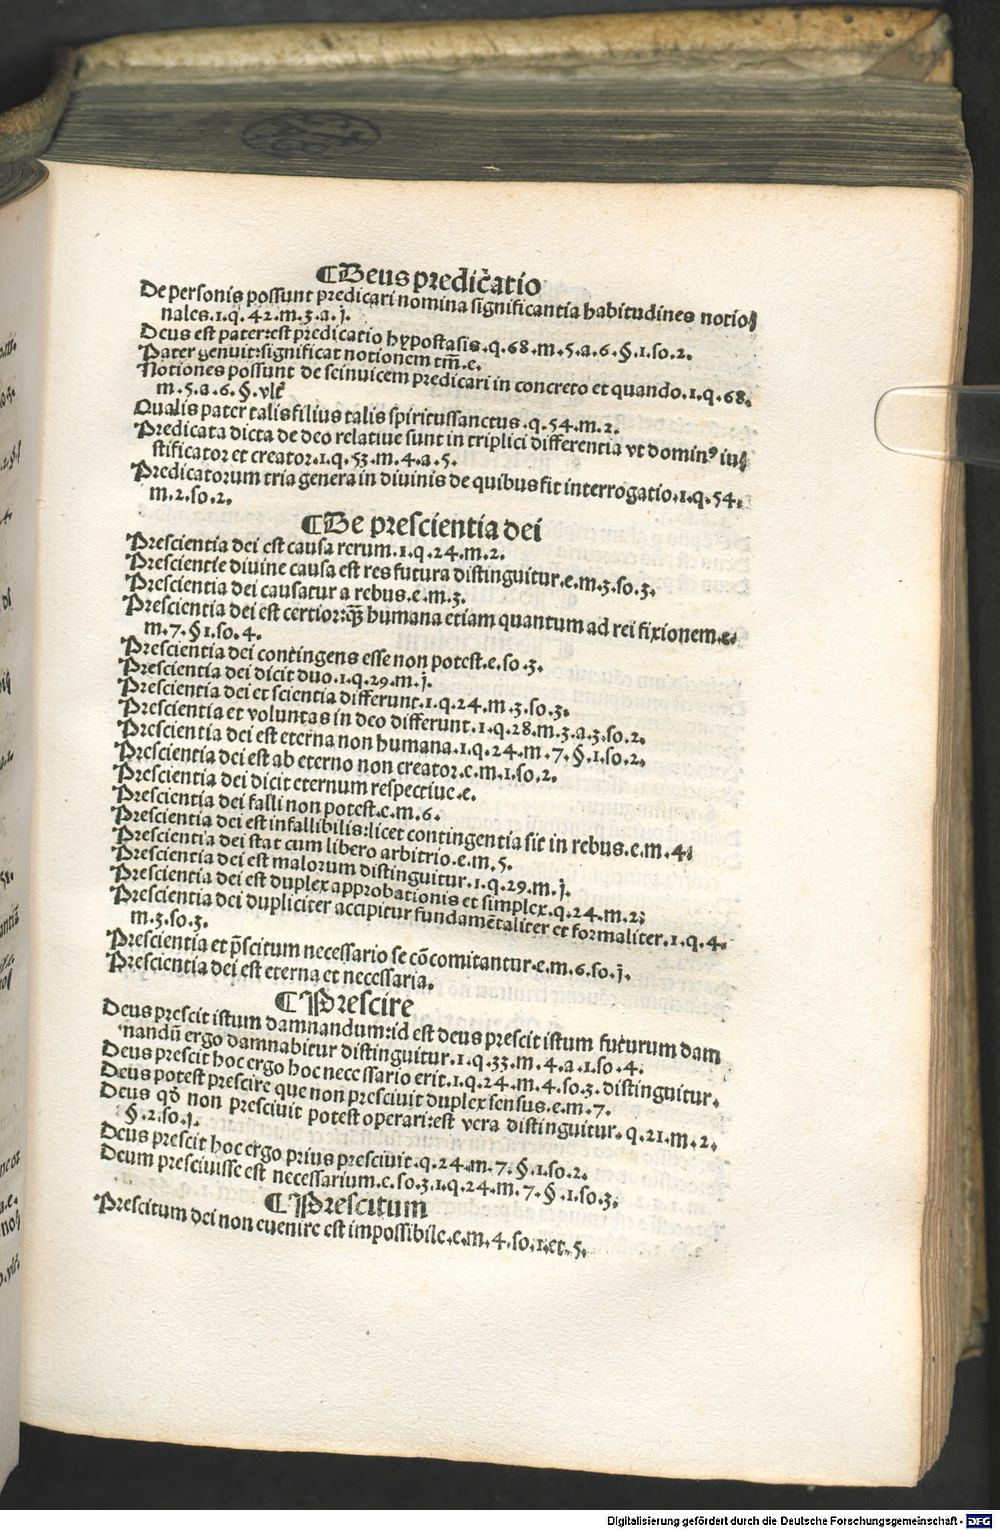 ¶Deus predic̄atio
De personis possunt predicari nomina significantia habitudines notio⸗
nales.1.q.42.m.3.a.j.
Deus est pater:est predicatio hypostasis.q.68.m.5.a.6.§.1.so.2.
Pater genuit:significat notionem tm̄.e.
Notiones possunt de seinuicem predicari in concreto et quando.1.q.68.
m.5.a.6.§.vlt̄
Qualis pater talis filius talis spiritussanctus.q.54.m.2.
Predicata dicta de deo relatiue sunt in triplici differentia vt dominꝰ iu⸗
stificator et creator.1.q.53.m.4.a.5.
Predicatorum tria genera in diuinis de quibus fit interrogatio.1.q.54.
m.2.so.2.
¶De prescientia dei
Prescientia dei est causa rerum.1.q.24.m.2.
Prescientie diuine causa est res futura distinguitur.e.m.3.so.3.
Prescientia dei causatur a rebus.e.m.3.
Prescientia dei est certior:q̄ꝫ humana etiam quantum ad rei fixionem.e.
m.7.§1.so.4.
Prescientia dei contingens esse non potest.e.so.3.
Prescientia dei dicit duo.1.q.29.m.j.
Prescientia dei et scientia differunt.1.q.24.m.3.so.3.
Prescientia et voluntas in deo differunt.1.q.28.m.3.a.3.so.2.
Prescientia dei est eterna non humana.1.q.24.m.7.§.1.so.2.
Prescientia dei est ab eterno non creator.e.m.1.so.2.
Prescientia dei dicit eternum respectiue.e.
Prescientia dei falli non potest.e.m.6.
Prescientia dei est infallibilis:licet contingentia sit in rebus.e.m.4.
Prescientia dei stat cum libero arbitrio.e.m.5.
Prescientia dei est malorum distinguitur.1.q.29.m.j.
Prescientia dei est duplex approbationis et simplex.q.24.m.2.
Prescientia dei dupliciter accipitur fundamētaliter et formaliter.1.q.4.
m.3.so.3.
Prescientia et p̄scitum necessario se cōcomitantur.e.m.6.so.j.
Prescientia dei est eterna et necessaria.
¶Prescire
Deus prescit istum damnandum:id est deus prescit istum futurum dam
nandū ergo damnabitur distinguitur.1.q.33.m.4.a.1.so.4.
Deus prescit hoc ergo hoc necessario erit.1.q.24.m.4.so.3.distinguitur.
Deus potest prescire que non presciuit duplex sensus.e.m.7.
Deus qđ non presciuit potest operari:est vera distinguitur.q.21.m.2.
§.2.so.j.
Deus prescit hoc ergo prius presciuit.q.24.m.7.§.1.so.2.
Deum presciuisse est necessarium.e.so.3.1.q.24.m.7.§.1.so.3.
¶Prescitum
Prescitum dei non euenire est impossibile.e.m.4.so.1.et.5.
Digitalisierung gefördert durch die Deutsche Forschungsgemeinschaft - DFG